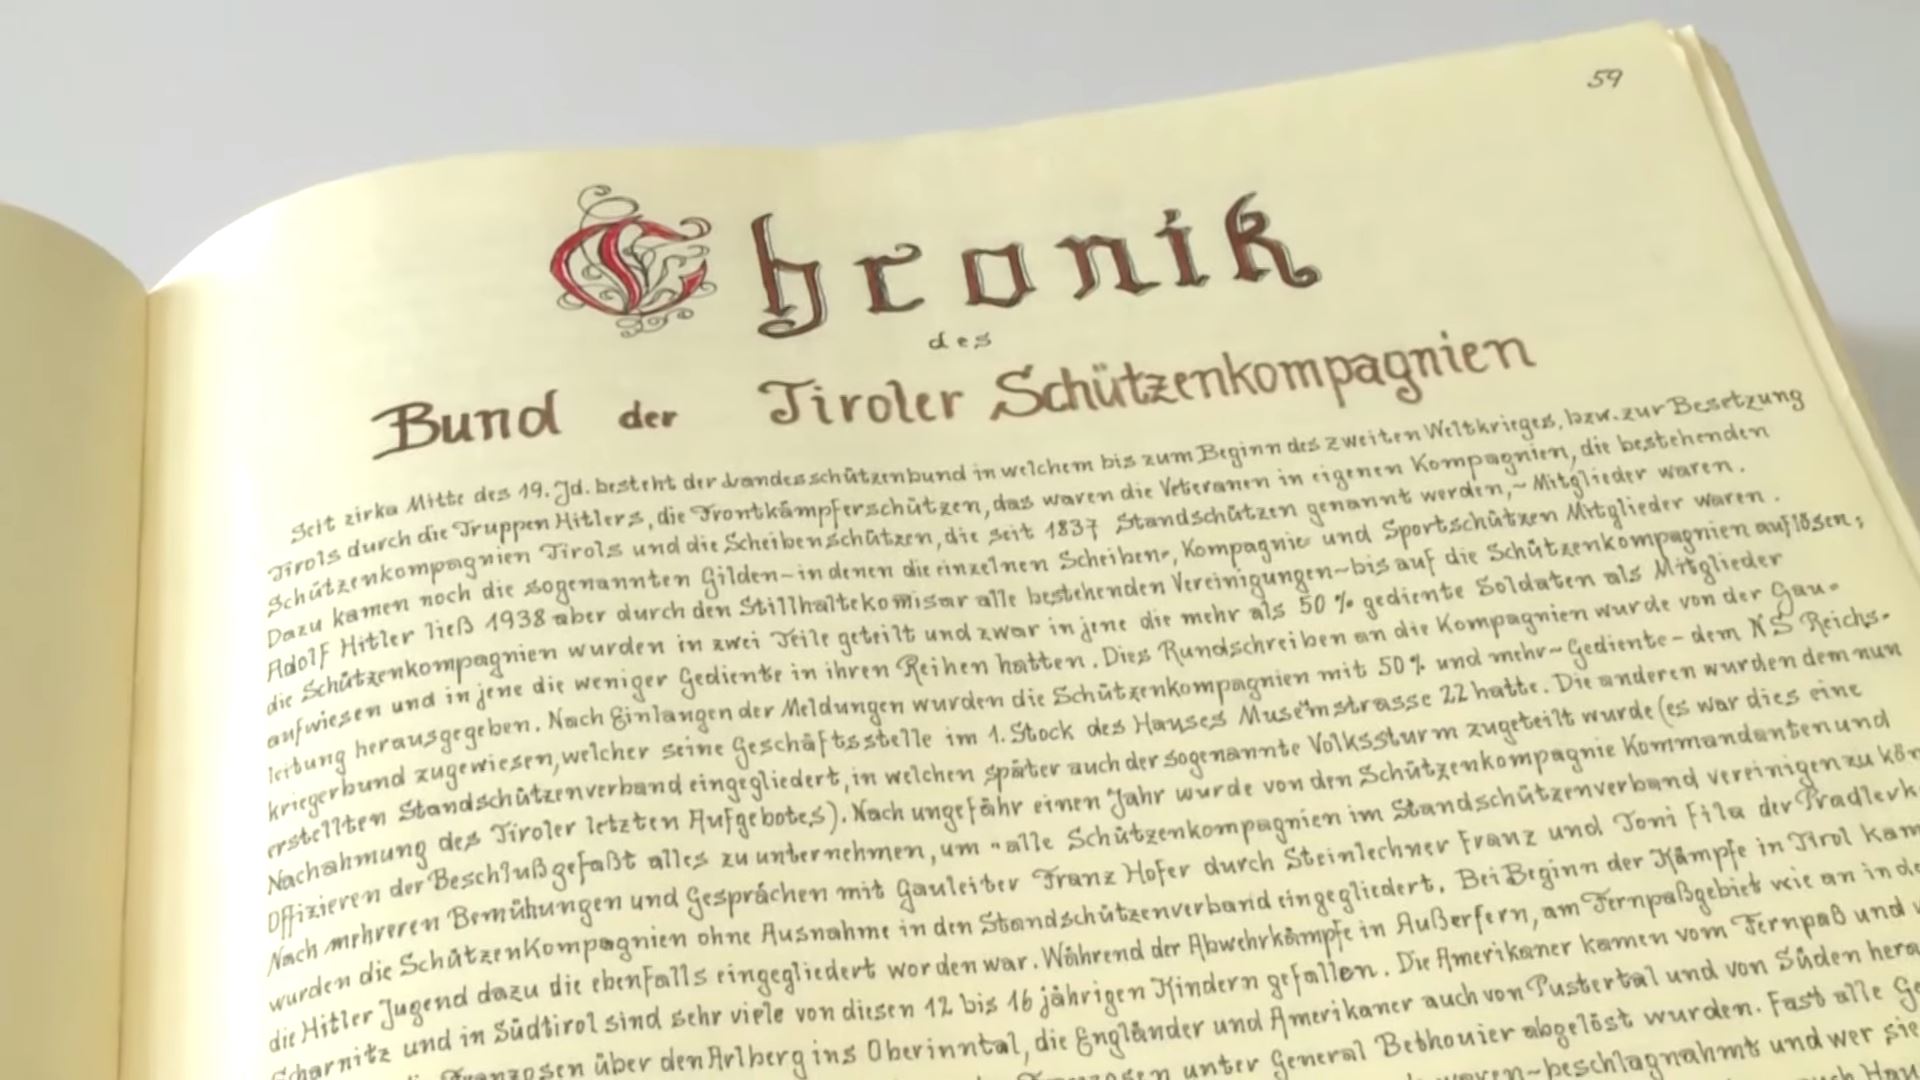 59
Chronik
des
Bund der Tiroler Schützenkompagnien
Seit zirka Mitte des 19. Jd. besteht der Landesschützenbund in welchem bis zum Beginn des zweiten Weltkrieges, bzw. zur Besetzung
Tirols durch die Truppen Hitlers, die Frontkämpferschützen, das waren die Veteranen in eigenen Kompagnien, die bestehenden
Schützenkompagnien Tirols und die Scheibenschützen, die seit 1837 Standschützen genannt werden,~ Mitglieder waren.
Dazu kamen noch die sogenannten Gilden~in denen die einzelnen Scheiben-, Kompagnie und Sportschützen Mitglieder waren.
Adolf Hitler ließ 1938 aber durch den Stillhaltekom̅isar alle bestehenden Vereinigungen~bis auf die Schützenkompagnien auflösen;
die Schützenkompagnien wurden in zwei Teile geteilt und zwar in jene die mehr als 50 % gediente Soldaten als Mitglieder
aufwiesen und in jene die weniger Gediente in ihren Reihen hatten. Dies Rundschreiben an die Kompagnien wurde von der Gau-
leitung herausgegeben. Nach Einlangen der Meldungen wurden die Schützenkompagnien mit 50 % und mehr~Gediente~dem NS Reichs-
kriegerbund zugewiesen, welcher seine Geschäftsstelle im 1. Stock des Hauses Museumstrasse 22 hatte. Die anderen wurden dem nun
erstellten Standschützenverband eingegliedert, in welchen später auch der sogenannte Volkssturm zugeteilt wurde (es war dies eine
Nachahmung des Tiroler letzten Aufgebotes). Nach ungefähr einen Jahr wurde von den Schützenkompagnie Kommandanten und
Offizieren der Beschluß gefaßt alles zu unternehmen, um "alle Schützenkompagnien im Standschützenverband vereinigen zu kön
Nach mehreren Bemühungen und Gesprächen mit Gauleiter Franz Hofer durch Steinlechner Franz und Toni Fila der Pradlerk
wurden die Schützenkompagnien ohne Ausnahme in den Standschützenverband eingegliedert. Bei Beginn der Kämpfe in Tirol kam
die Hitler Jugend dazu die ebenfalls eingegliedert worden war. Während der Abwehrkämpfe in Außerfern, am Fernpaßgebiet wie an in de
Scharnitz und in Südtirol sind sehr viele von diesen 12 bis 16 jährigen Kindern gefallen. Die Amerikaner kamen vom Fernpaß und
Franzosen über den Arlberg ins Oberinntal, die Engländer und Amerikaner auch von Pustertal und von Süden hera
unter General Bethouier abgelöst wurden. Fast alle Ge
waren~beschlagnahmt und wer sie